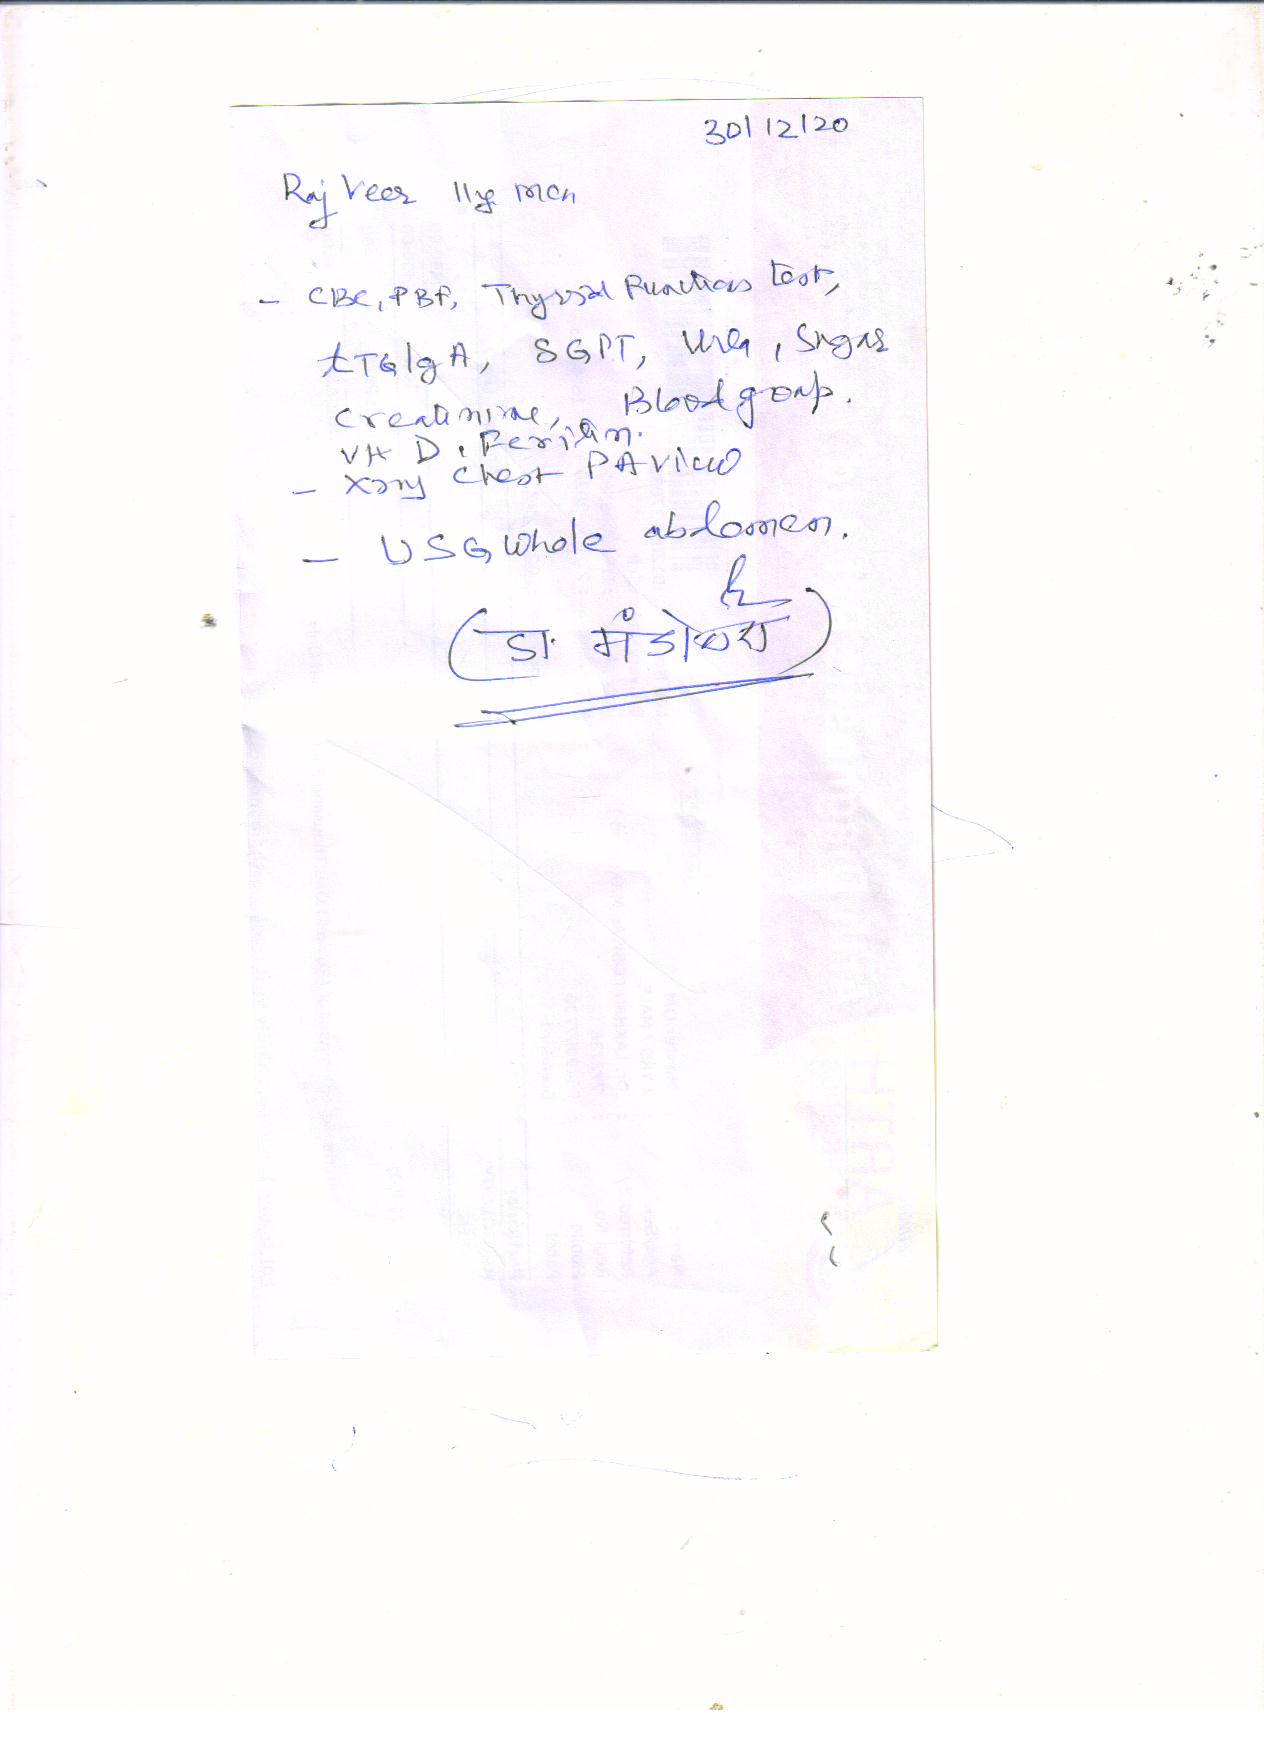 30/12/20
Raj Veer 11y mch
- CBC, PBF, Thyroid Function test,
tTGIgA, SGPT, Urea, Sugar
Creatinine, Blood group.
Vit D, Ferritin.
- Xray Chest PA view
- USG whole abdomen.
(डा. मंडोवरा)